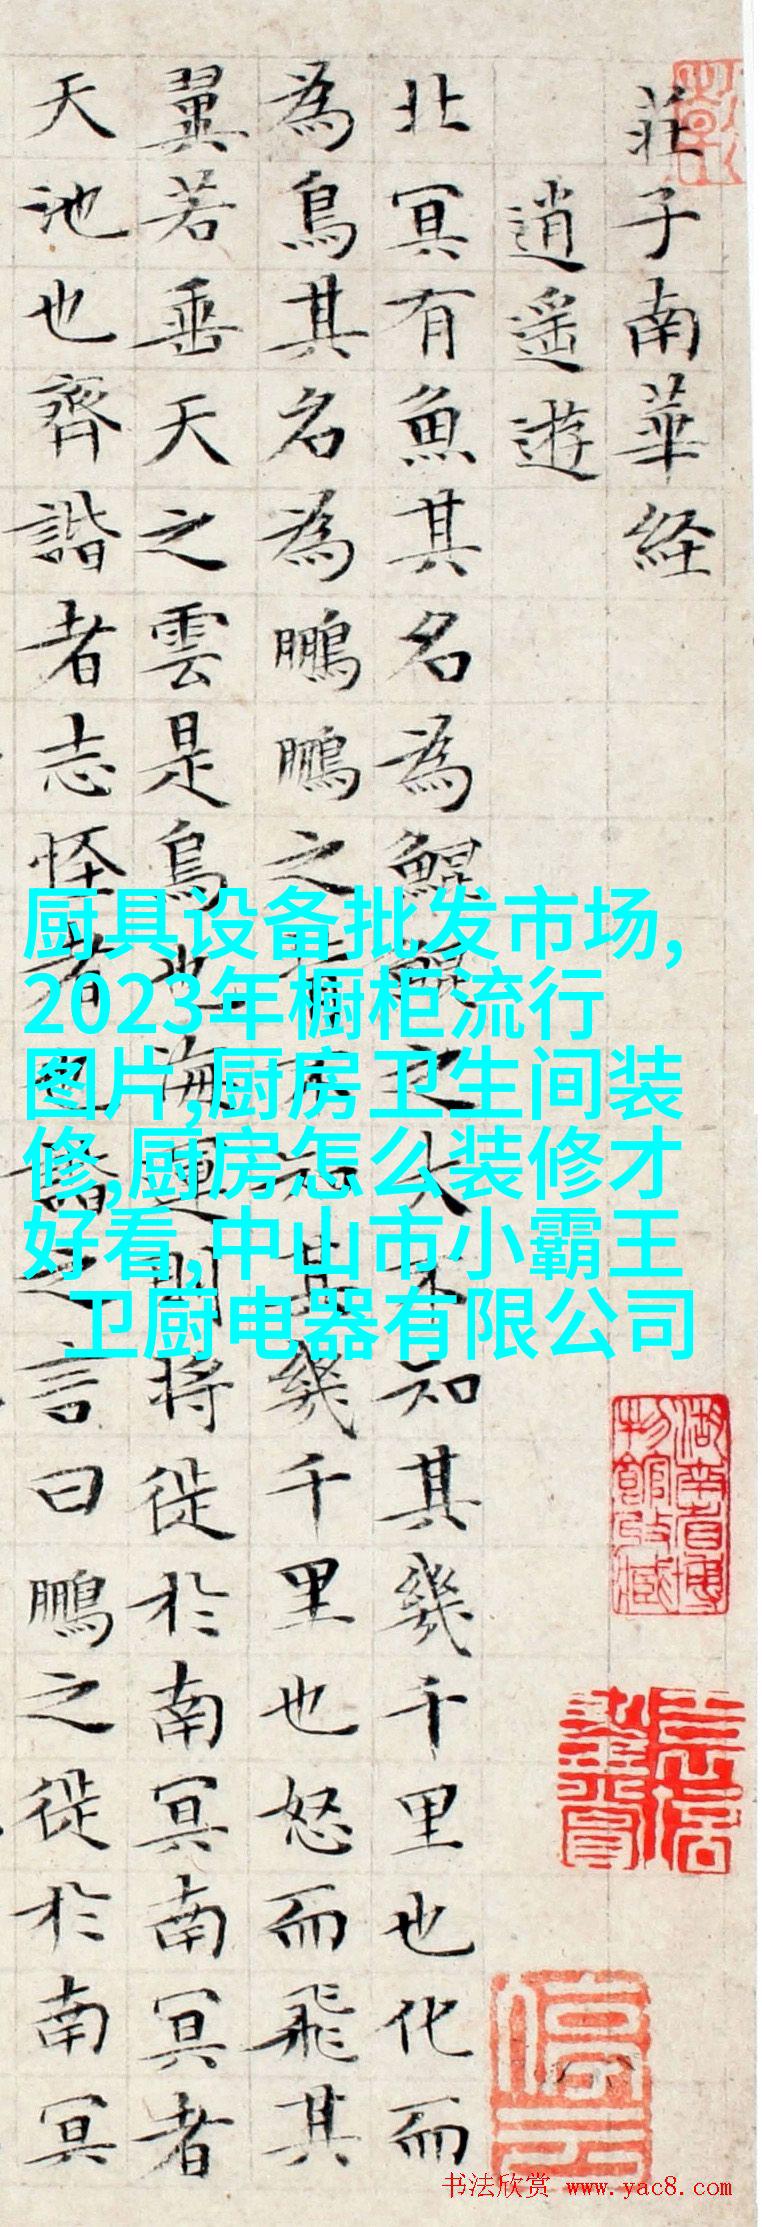 莊子南華経
逍遥遊
北冥有魚其名為鯤鯤之大不知其幾千里也化而
為鳥其名為鵬鵬之背不知其幾千里也怒而飛其
翼若垂天之雲是鳥也海運則將徙於南冥南冥者
天池也齊諧者志怪者也諧之言曰鵬之徙於南冥
厨具设备批发市场,
2023年橱柜流行
图片,厨房卫生间装
修,厨房怎么装修才
好看,中山市小霸王
卫厨电器有限公司
湖南省博
物館收藏
书法欣赏 www.yac8.com